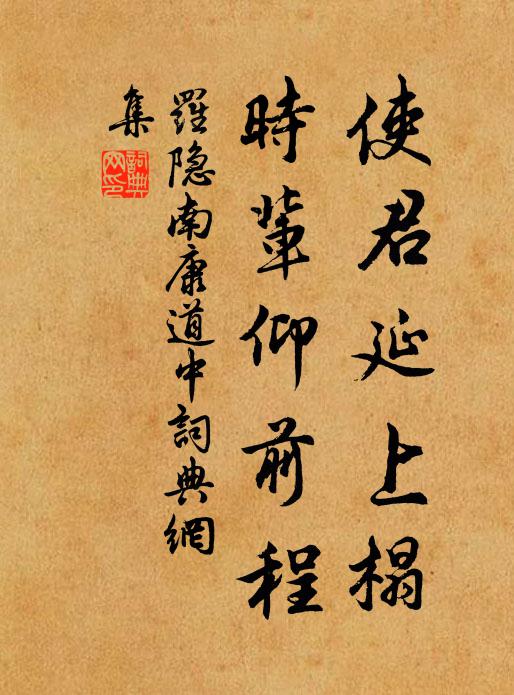 使君延上榻
時輩仰前程
羅隐南康道中詞典網
集
詞典
网印